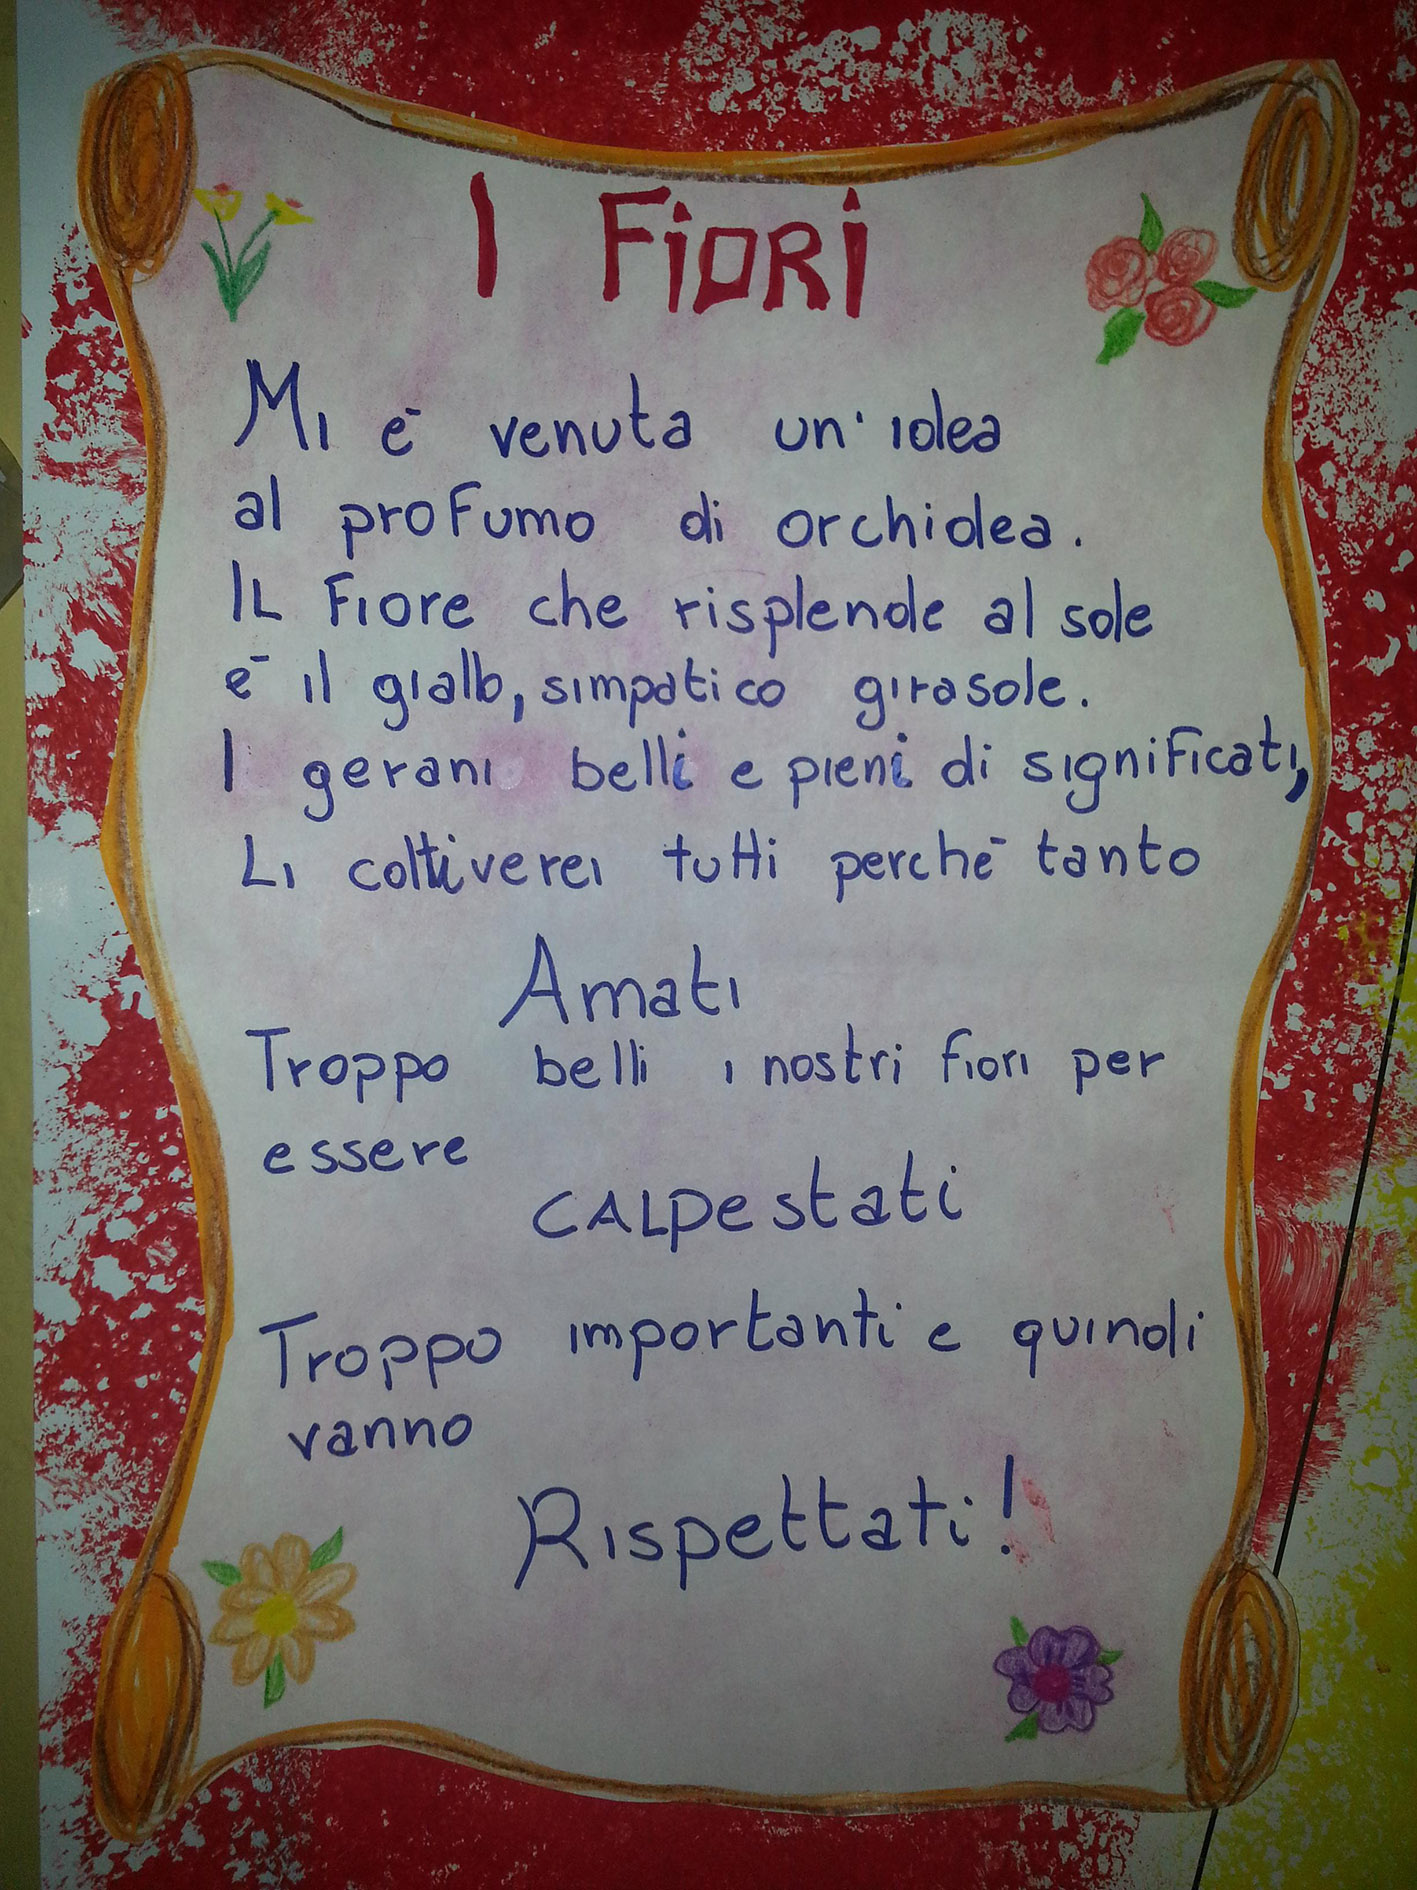 I FiORi
Mi è venuta un'idea
al profumo di orchidea.
IL Fiore che risplende al sole
è il giallo, simpatico girasole.
I gerani belli e pieni di significati,
Li coltiverei tutti perchè tanto
Amati
Troppo belli i nostri fiori per
essere
CALpestati
Troppo importanti e quindi
vanno
Rispettati!